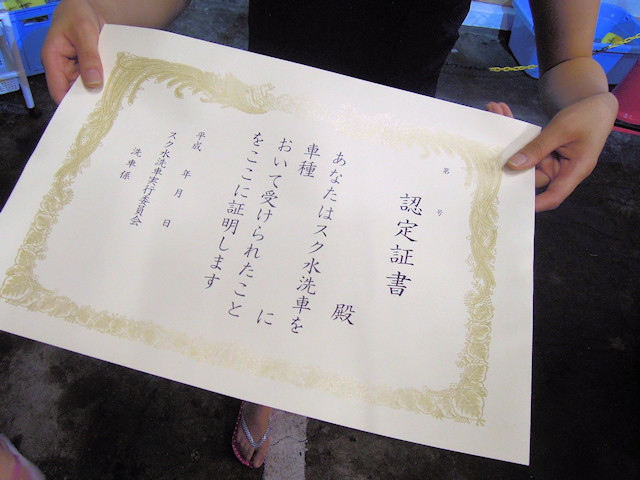 第 号
認定証書
殿
あなたはスク水洗車を
車種 に
おいて受けられたこと
をここに証明します
平成 年 月 日
スク水洗車実行委員会
洗車係